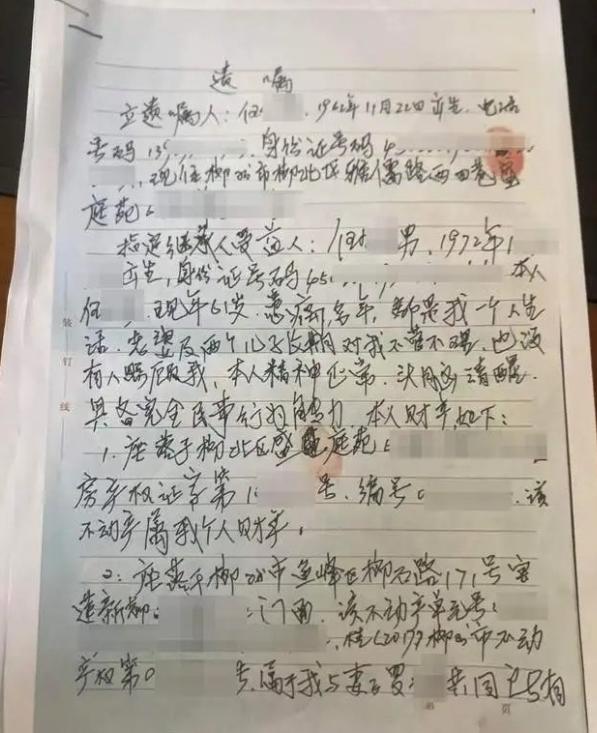 遗嘱
立遗嘱人：任 1962年11月22日出生，电话
号码13 ，身份证号码4
，现住柳州市柳北区 路西 巷
庭苑
指定继承人受益人：任 男，1972年1
出生，身份证号码45 本人
任 ，现年61岁，患病多年，都是我一个人生
活，老婆及两个儿子长期对我不管不理，也没
有人照顾我，本人精神正常，头脑清醒，
具备完全民事行为能力，本人财产如下：
1、座落于柳北区盛 庭苑
房产权证字第1 号，编号 ，该
不动产属我个人财产。
2、座落于柳州市鱼峰区柳石路171号
新柳 门面，该不动产单元号
，桂(2017)柳州市不动
产权第0 号，属于我与妻子罗 共同
装
订
线
第 页